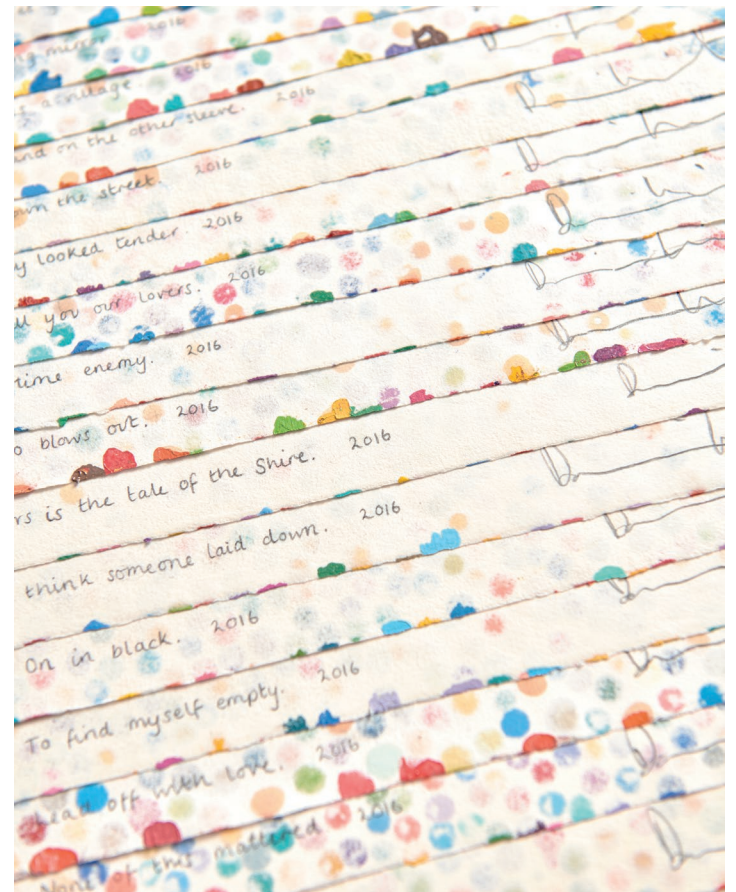 2016
mirror 2016
as a mirage 2016
and on the other sleeve. 2016
own the street. 2016
y looked tender. 2016
ll you our lovers. 2016
time enemy. 2016
o blows out. 2016
rs is the tale of the Shire. 2016
think someone laid down. 2016
On in black. 2016
To find myself empty. 2016
off with love. 2016
None of this mattered 2016